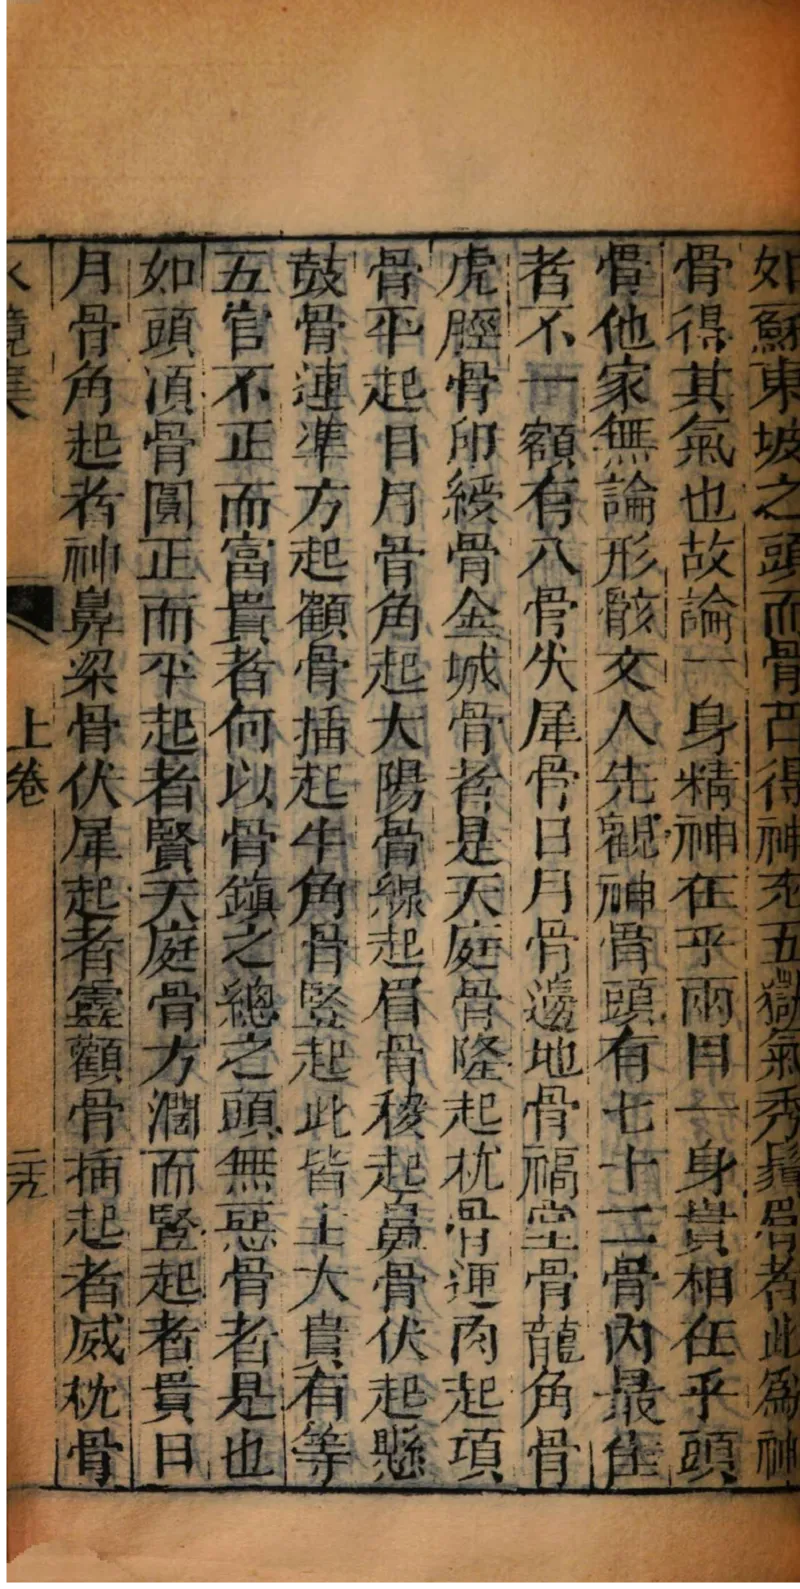 如蘇東坡之頭而骨凸得神充五嶽氣秀鬚眉者此為神
骨得其氣也故論一身精神在乎兩目一身貴相在乎頭
骨他家無論形骸文人先觀神骨頭有七十二骨內最佳
者不一額有八骨伏犀骨日月骨邊地骨福堂骨龍角骨
虎脛骨印綬骨金城骨者是天庭骨隆起枕骨連肉起項
骨平起日月骨角起太陽骨線起眉骨稜起鼻骨伏起懸
鼓骨連準方起顴骨插起牛角骨竪起此皆主大貴有等
五官不正而富貴者何以骨鎮之總之頭無惡骨者是也
如頭頂骨圓正而平起者賢天庭骨方濶而竪起者貴日
月骨角起者神鼻梁骨伏犀起者靈顴骨插起者威枕骨
水鏡集 上卷 二九